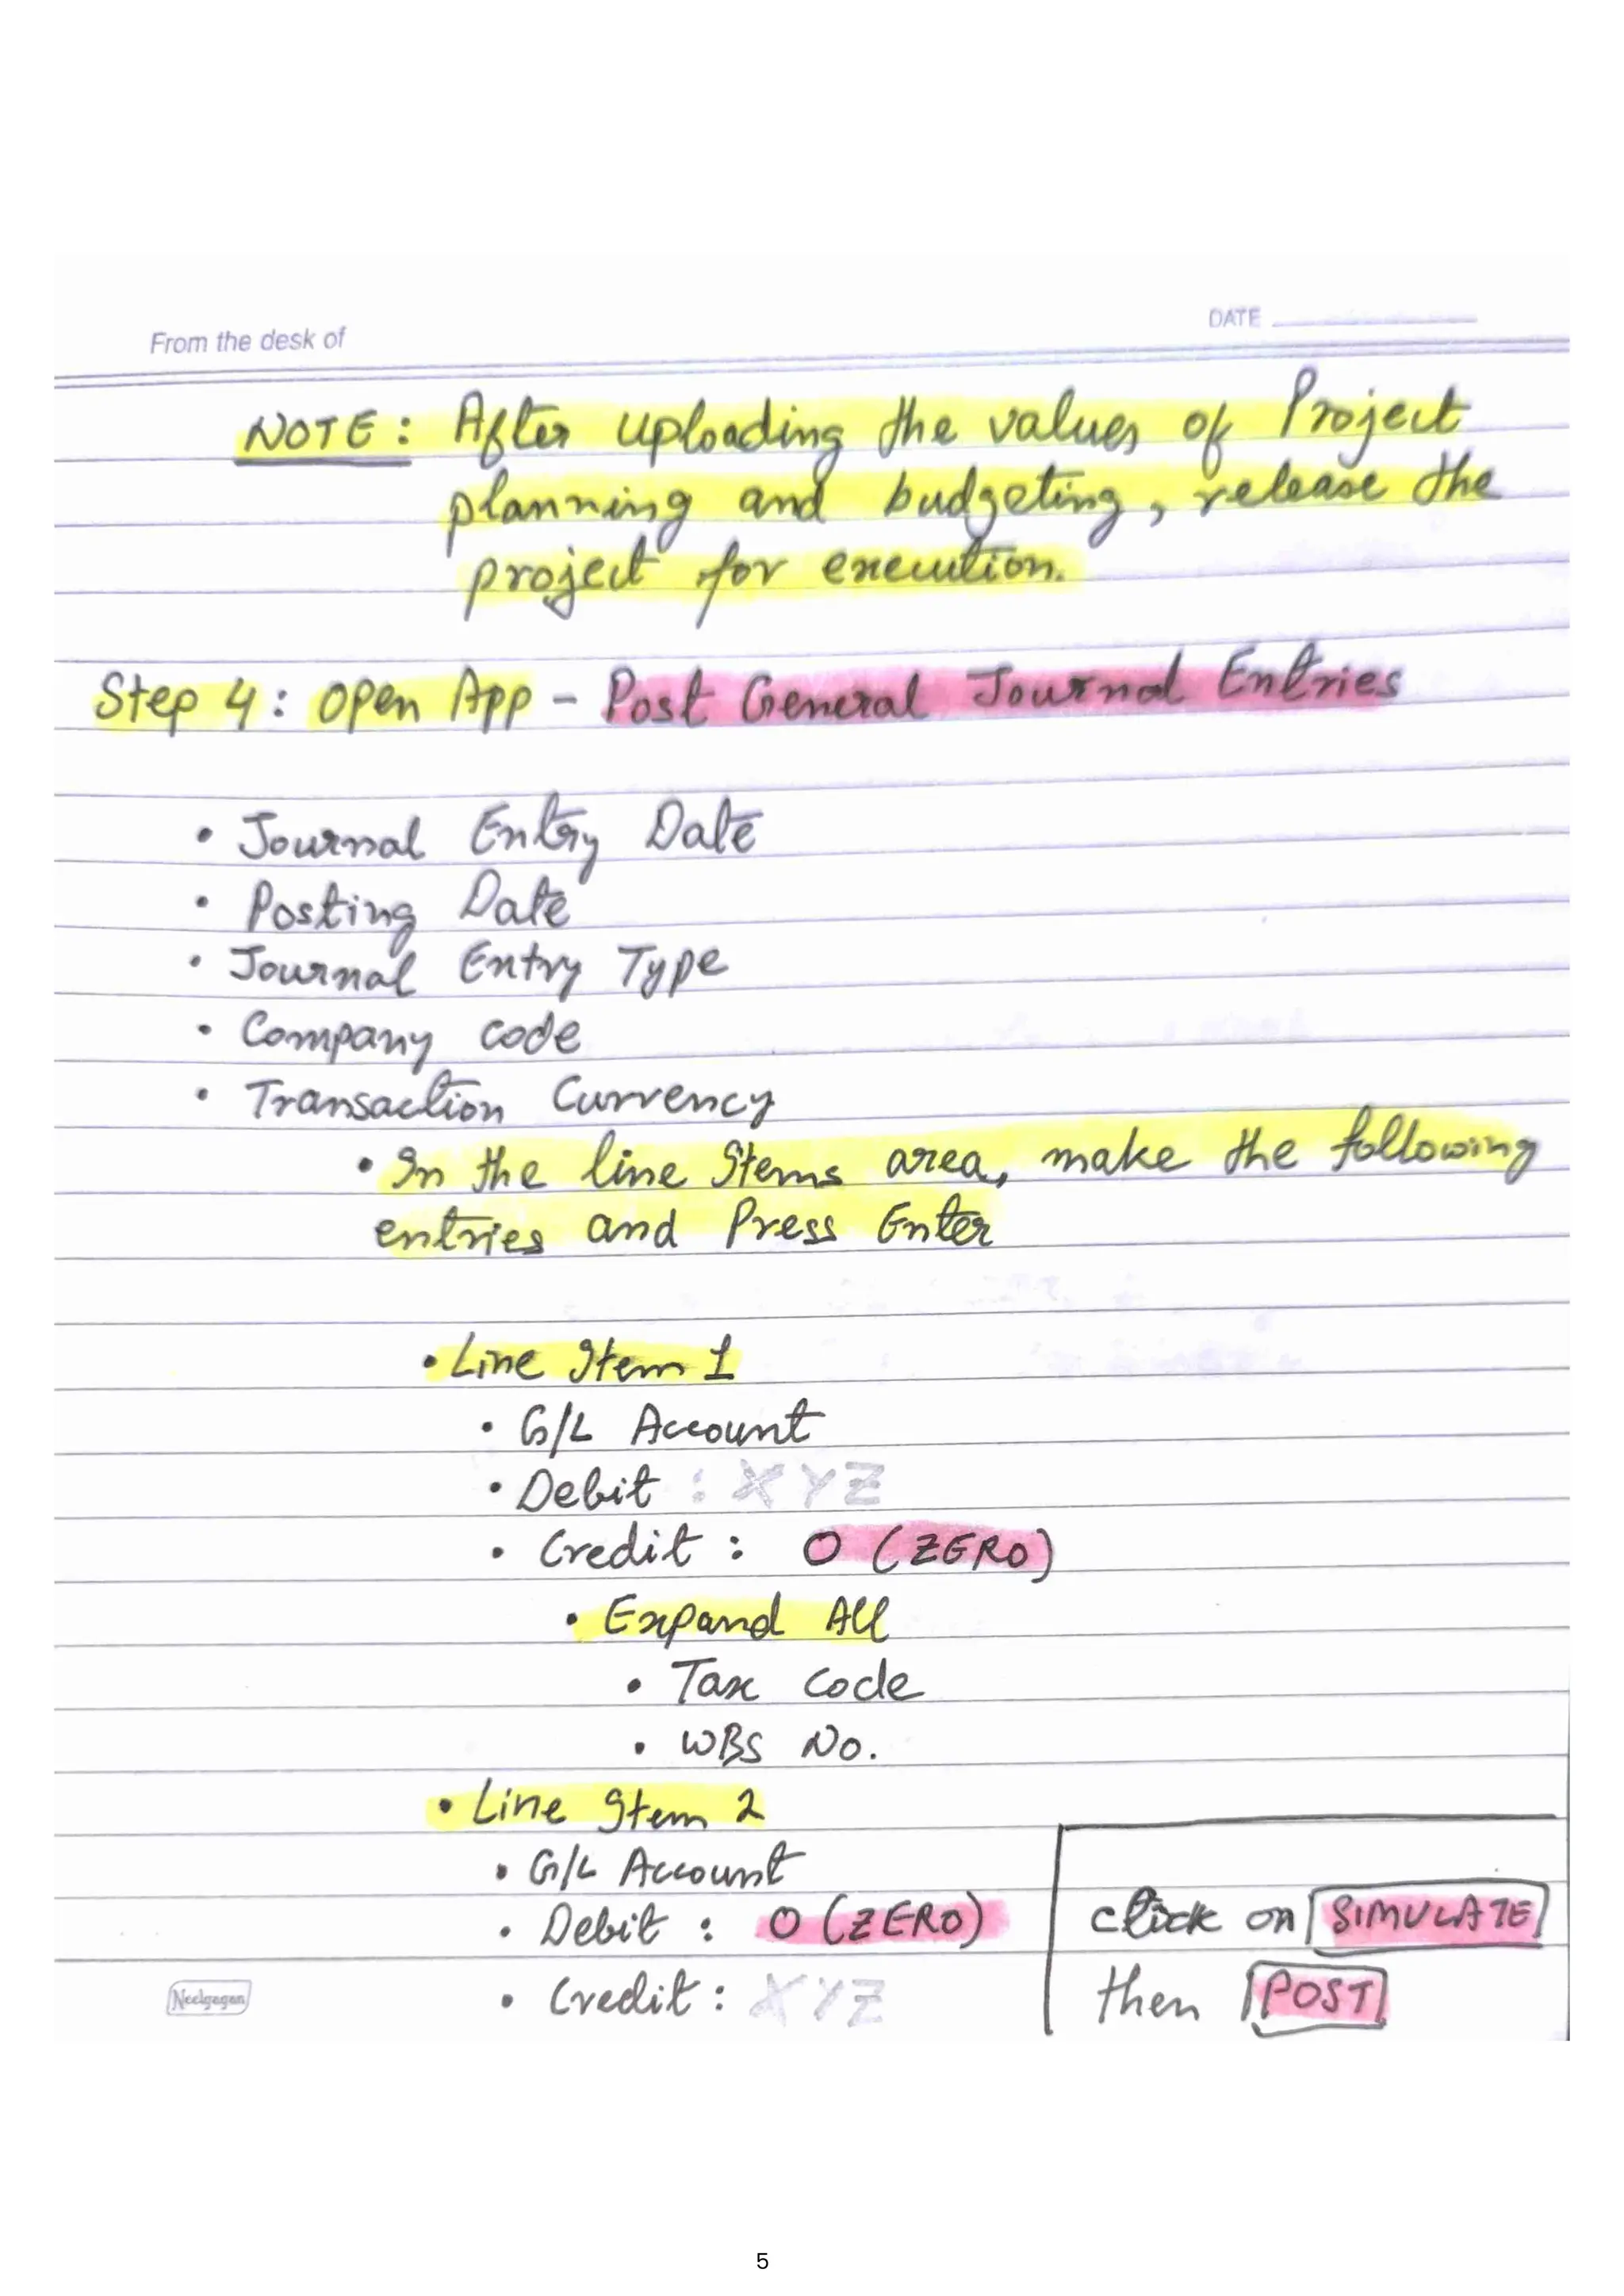 From the desk of
DATE
NOTE: After uploading the values of Project
planning and budgeting, release the
project for execution.
Step 4: Open App - Post General Journal Entries
• Journal Entry Date
• Posting Date
• Journal Entry Type
• Company code
• Transaction Currency
• In the line Items area, make the following
entries and Press Enter
• Line Item 1
• G/L Account
• Debit : XYZ
• Credit : 0 (ZERO)
• Expand All
• Tax Code
• WBS No.
• Line Item 2
• G/L Account
• Debit : 0 (ZERO)
• Credit : XYZ
click on SIMULATE
then POST
Neelgagan
5